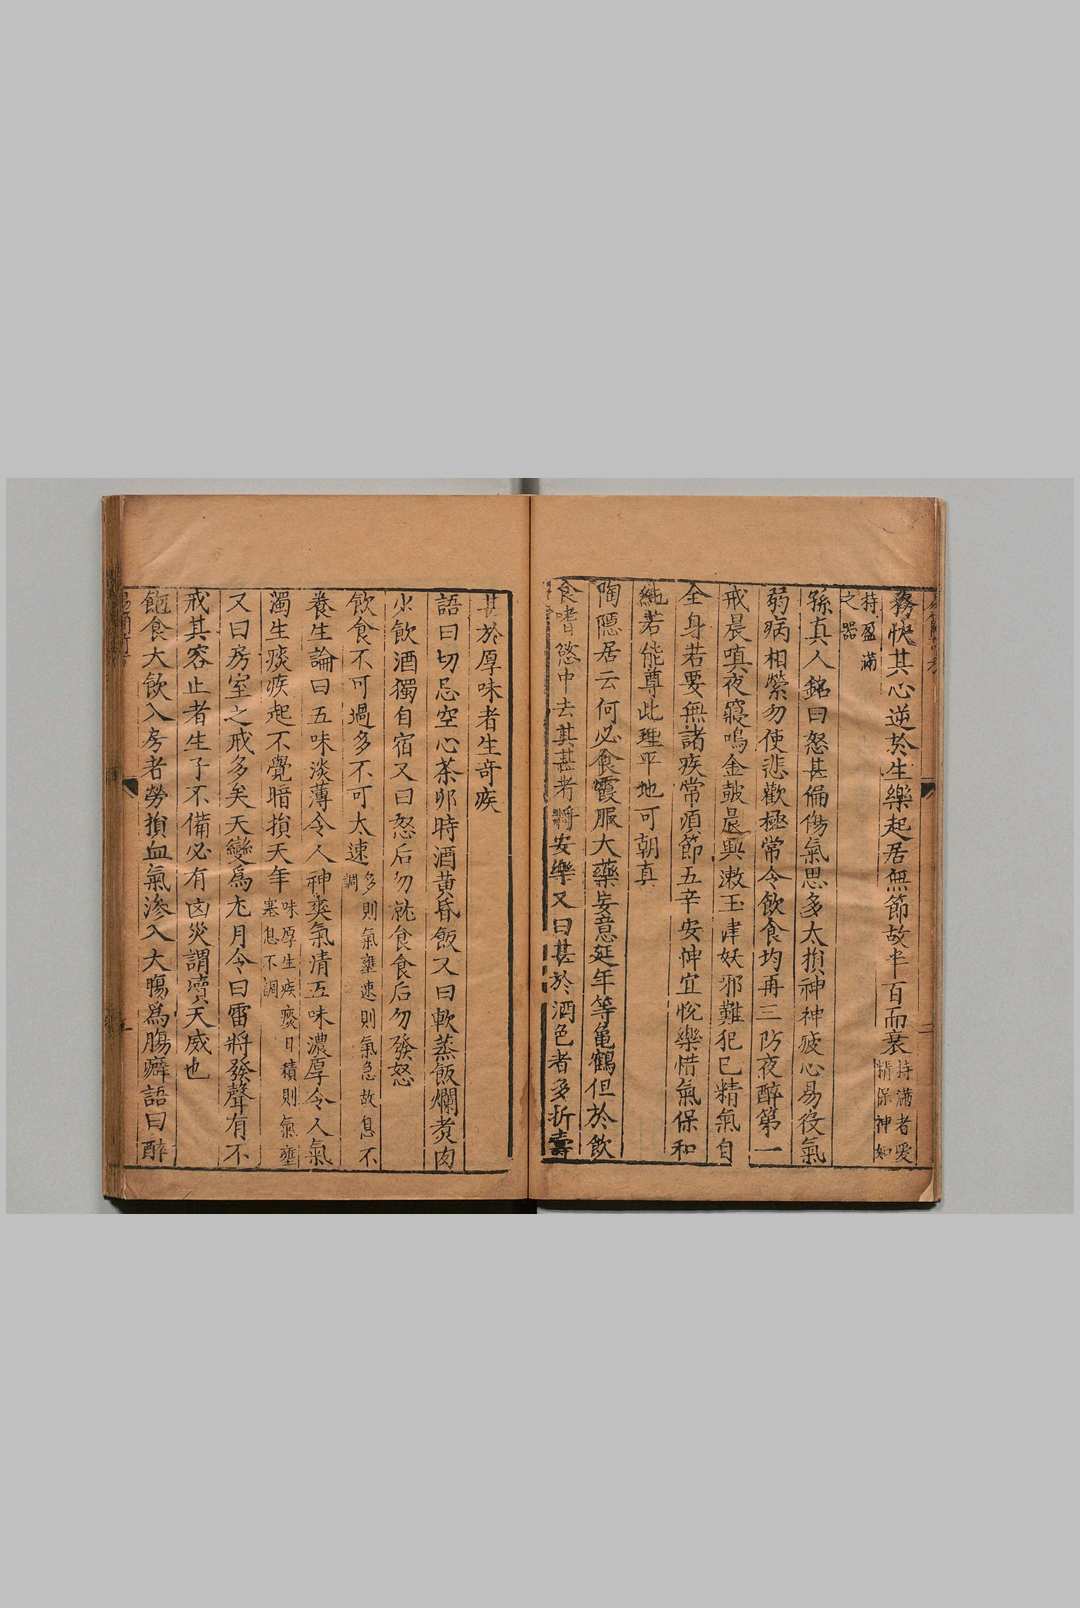 務快其心逆於生樂起居無節故半百而衰持滿者愛精保神如
持盈滿之器
孫真人銘曰怒甚偏傷氣思多太損神神疲心易役氣
弱病相縈勿使悲歡極常令飲食均再三防夜醉第一
戒晨嗔夜寢鳴金皷晨興漱玉津妖邪難犯已精氣自
全身若要無諸疾常湏節五辛安神宜悅樂惜氣保和
純若能尊此理平地可朝真
陶隱居云何必食霞服大藥妄意延年等龜鶴但於飲
食嗜慾中去其甚者將安樂又曰甚於酒色者多折壽
甚於厚味者生奇疾
語曰切忌空心茶卯時酒黃昏飯又曰軟蒸飯爛煑肉
少飲酒獨自宿又曰怒后勿就食食后勿發怒
飲食不可過多不可太速多則氣壅速則氣急故息不調
養生論曰五味淡薄令人神爽氣清五味濃厚令人氣
濁生痰疾起不覺暗損天年味厚生疾痰日積則氣壅塞息不調
又曰房室之戒多矣天變爲尤月令曰雷將發聲有不
戒其容止者生子不備必有凶災謂瀆天威也
飽食大飲入房者勞損血氣滲入大腸爲腸癖語曰醉